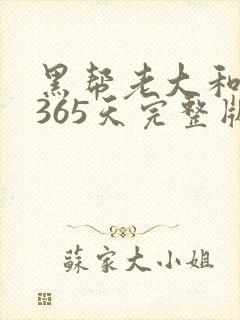 黑帮老大和
365天完整版
蘇家大小姐